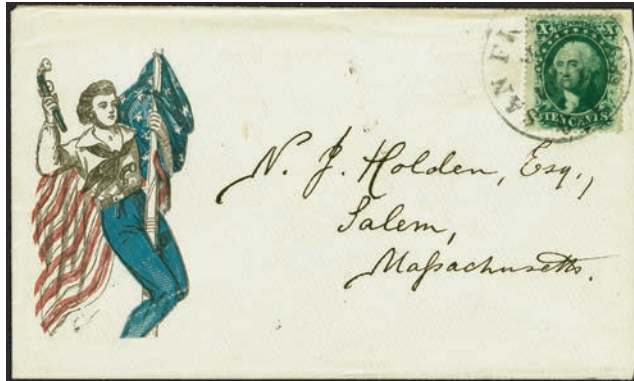 X X
SAN FRA
TEN CENTS
N. J. Holden, Esq.,
Salem,
Maſsachusetts.